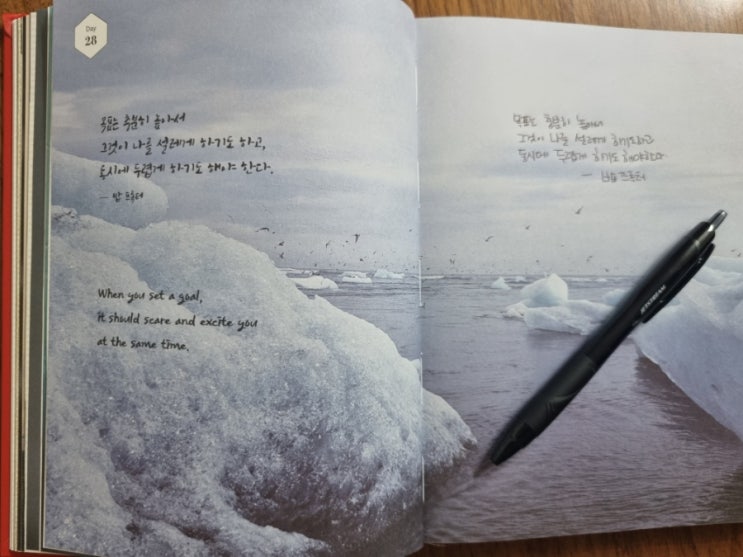 Day
28
목표는 충분히 높아서
그것이 나를 설레게 하기도 하고,
동시에 두렵게 하기도 해야 한다.
— 밥 프록터
When you set a goal,
it should scare and excite you
at the same time.
목표는 충분히 높아서
그것이 나를 설레게 하기도하고
동시에 두렵게 하기도 해야한다
— 밥 프록터
JETSTREAM